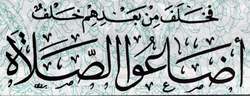 فخلف من بعدهم خلف
أضاعوا الصلاة